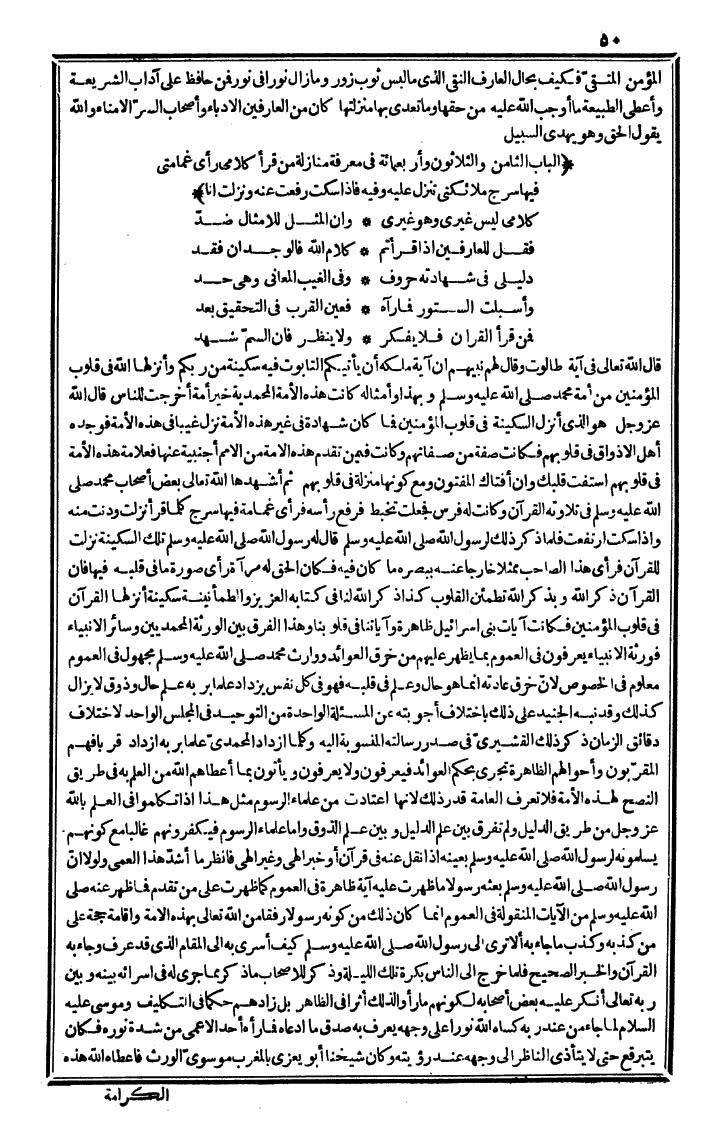 ٥٠
المؤمن المتقي فكيف بحال العارف النقي الذي ما لبس ثوب زور وما زال نورا في نور فن حافظ على آداب الشريعة
وأعطى الطبيعة ما أوجب الله عليه من حقها وما تعدى بها منزلتها كان من العارفين الادباء وأصحاب السر الامناء والله
يقول الحق وهو يهدي السبيل
﴿الباب الثامن والثلاثون وأربعمائة في معرفة منازلة من قرأ كلامى رأى غمامتى
فيها سرج ملائكتى تنزل عليه وفيه فاذا سكت رفعت عنه ونزلت انا﴾
كلامى ليس غيرى وهو غيرى * وان المثل للامثال ضد
فقل للعارفين اذا قرأتم * كلام الله فالوجدان فقد
دليلى فى شهادته حروف * وفى الغيب المعانى وهى حد
وأسبلت الستور فما رآه * فعين القرب فى التحقيق بعد
فمن قرأ القران فلا يفكر * ولا ينظر فان السم شهد
قال الله تعالى فى آية طالوت وقال لهم نبيهم ان آية ملكه أن يأتيكم التابوت فيه سكينة من ربكم وأنزلها الله فى قلوب
المؤمنين من أمة محمد صلى الله عليه وسلم وبهذا وأمثاله كانت هذه الأمة المحمدية خير أمة أخرجت للناس قال الله
عز وجل هو الذى أنزل السكينة فى قلوب المؤمنين فما كان شهادة فى غير هذه الأمة نزل غيبا فى هذه الأمة فوجده
أهل الاذواق فى قلوبهم فكانت صفة من صفاتهم وكانت فيمن تقدم هذه الامة من الامم أجنبية عنها فعلامة هذه الأمة
فى قلوبهم استفت قلبك وان أفتاك المفتون ومع كونها منزلة فى قلوبهم ثم أشهدها الله تعالى بعض أصحاب محمد صلى
الله عليه وسلم فى تلاوته القرآن وكانت له فرس فجعلت تخبط فرفع رأسه فرأى غمامة فيها سرج كلما قرأ نزلت ودنت منه
واذا سكت ارتفعت فلما ذكر ذلك لرسول الله صلى الله عليه وسلم قال له رسول الله صلى الله عليه وسلم تلك السكينة نزلت
للقرآن فرأى هذا الصاحب ممثلا خارجا عنه ببصره ما كان فيه فكان الحق له مرآة رأى صورة ما فى قلبه فيها فان
القرآن ذكر الله وبذكر الله تطمئن القلوب كذا ذكر الله لنا فى كتابه العزيز والطمأنينة سكينة أنزلها القرآن
فى قلوب المؤمنين فكانت آيات بنى اسرائيل ظاهرة وآياتنا فى قلوبنا وهذا الفرق بين الورثة المحمديين وسائر الانبياء
فورثة الانبياء يعرفون فى العموم بما يظهر عليهم من خرق العوائد ووارث محمد صلى الله عليه وسلم مجهول فى العموم
معلوم فى الخصوص لان خرق عادته انما هو حال وعلم فى قلبه فهو فى كل نفس يزداد علما بربه علم حال وذوق لا يزال
كذلك وقد نبه الجنيد على ذلك باختلاف أجوبته عن المسئلة الواحدة من التوحيد فى المجلس الواحد لاختلاف
دقائق الزمان ذكر ذلك القشيرى فى صدر رسالته المنسوبة اليه وكلما ازداد المحمدى علما بربه ازداد قربا فهم
المقربون وأحوالهم الظاهرة تجرى بحكم العوائد فيعرفون ولا يعرفون ويأتون بما أعطاهم الله من العلم به فى طريق
النصح لهذه الأمة فلا تعرف العامة قدر ذلك لانها اعتادت من علماء الرسوم مثل هذا اذا تكلموا فى العلم بالله
عز وجل من طريق الدليل ولم تفرق بين علم الدليل وبين علم الذوق واما علماء الرسوم فيكفرونهم غالبا مع كونهم
يسلمونه لرسول الله صلى الله عليه وسلم بعينه اذا نقل عنه فى قرآن أو خبر الهى وغير الهى فانظر ما أشد هذا العمى ولولا ان
رسول الله صلى الله عليه وسلم بعثه رسولا ما ظهرت عليه آية ظاهرة فى العموم كما ظهرت على من تقدم فما ظهر عنه صلى
الله عليه وسلم من الآيات المنقولة فى العموم انما كان ذلك من كونه رسولا رفقا من الله تعالى بهذه الامة واقامة حجة على
من كذبه وكذب ما جاء به ألا ترى الى رسول الله صلى الله عليه وسلم كيف أسرى به الى المقام الذى قد عرف وجاء به
القرآن والخبر الصحيح فلما خرج الى الناس بكرة تلك الليلة وذكر للاصحاب ما ذكر مما جرى له فى اسرائه بينه وبين
ربه تعالى أنكر عليه بعض أصحابه لكونهم ما رأوا لذلك أثرا فى الظاهر بل زادهم حكما فى التكليف وموسى عليه
السلام لما جاء من عند ربه كساه الله نورا على وجهه يعرف به صدق ما ادعاه فما رآه أحد الا عمى من شدة نوره فكان
يتبرقع حتى لا يتأذى الناظر الى وجهه عند رؤيته وكان شيخنا أبو يعزى بالمغرب موسوى الورث فاعطاه الله هذه
الكرامة